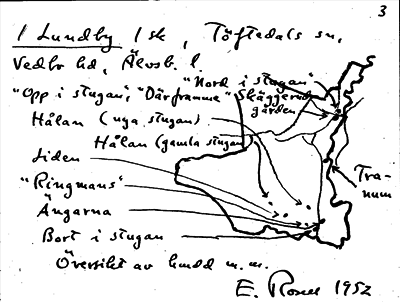 3
1 Lundby 1 sk, Töftedals sn,
Vedbo hd, Älvsb. l.
"Nord i stugan"
"Opp i stugan," "Därframme" Skäggerud
gården
Hålan (nya stugan)
Hålan (gamla stugan)
Liden
"Ringmans"
Tranum
Ängarna
Bort i stugan
Översikt av hmdd m.m.
E. Rosell 1952